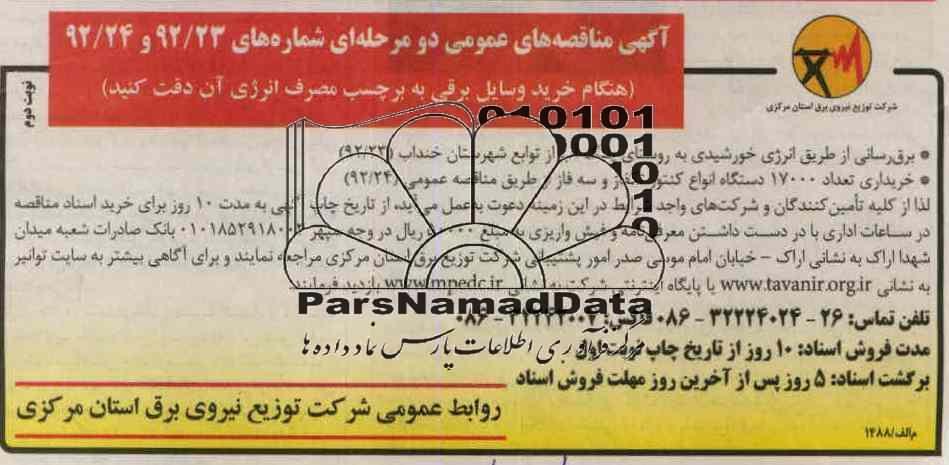 آگهی مناقصه‌های عمومی دو مرحله‌ای شماره‌های ۹۲/۲۳ و ۹۲/۲۴
(هنگام خرید وسایل برقی به برچسب مصرف انرژی آن دقت کنید)
شرکت توزیع نیروی برق استان مرکزی
نوبت دوم
010101
0001
10
1
0
• برق‌رسانی از طریق انرژی خورشیدی به روستای از توابع شهرستان خنداب (۹۲/۲۳)
• خریداری تعداد ۱۷۰۰۰ دستگاه انواع کنتور تکفاز و سه فاز از طریق مناقصه عمومی (۹۲/۲۴)
لذا از کلیه تأمین‌کنندگان و شرکت‌های واجد شرایط در این زمینه دعوت به‌عمل می‌آید، از تاریخ چاپ آگهی به مدت ۱۰ روز برای خرید اسناد مناقصه
در ساعات اداری با در دست داشتن معرفی‌نامه و فیش واریزی به مبلغ ریال در وجه سپهر بانک صادرات شعبه میدان
شهدا اراک به نشانی اراک – خیابان امام موسی صدر امور پشتیبانی شرکت توزیع برق استان مرکزی مراجعه نمایند و برای آگاهی بیشتر به سایت توانیر
به نشانی www.tavanir.org.ir یا پایگاه اینترنتی شرکت به نشانی www.mpedc.ir بازدید فرمایند.
ParsNamadData
تلفن تماس: ۲۶ - ۳۲۲۲۴۰۲۴ - ۰۸۶ فاکس: ۳۲۲۲۲۰۰۲ - ۰۸۶
مرکز فرآوری اطلاعات پارس نماد داده ها
مدت فروش اسناد: ۱۰ روز از تاریخ چاپ نوبت اول
برگشت اسناد: ۵ روز پس از آخرین روز مهلت فروش اسناد
روابط عمومی شرکت توزیع نیروی برق استان مرکزی
م/الف/۱۴۸۸